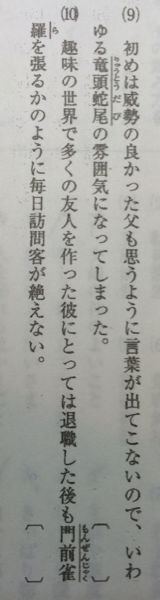 (9) 初めは威勢の良かった父も思うように言葉が出てこないので、いわ
ゆる竜頭蛇尾の雰囲気になってしまった。〔　　〕
りゅうとうだび
(10) 趣味の世界で多くの友人を作った彼にとっては退職した後も門前雀
もんぜんじゃく
羅を張るかのように毎日訪問客が絶えない。〔　　〕
ら